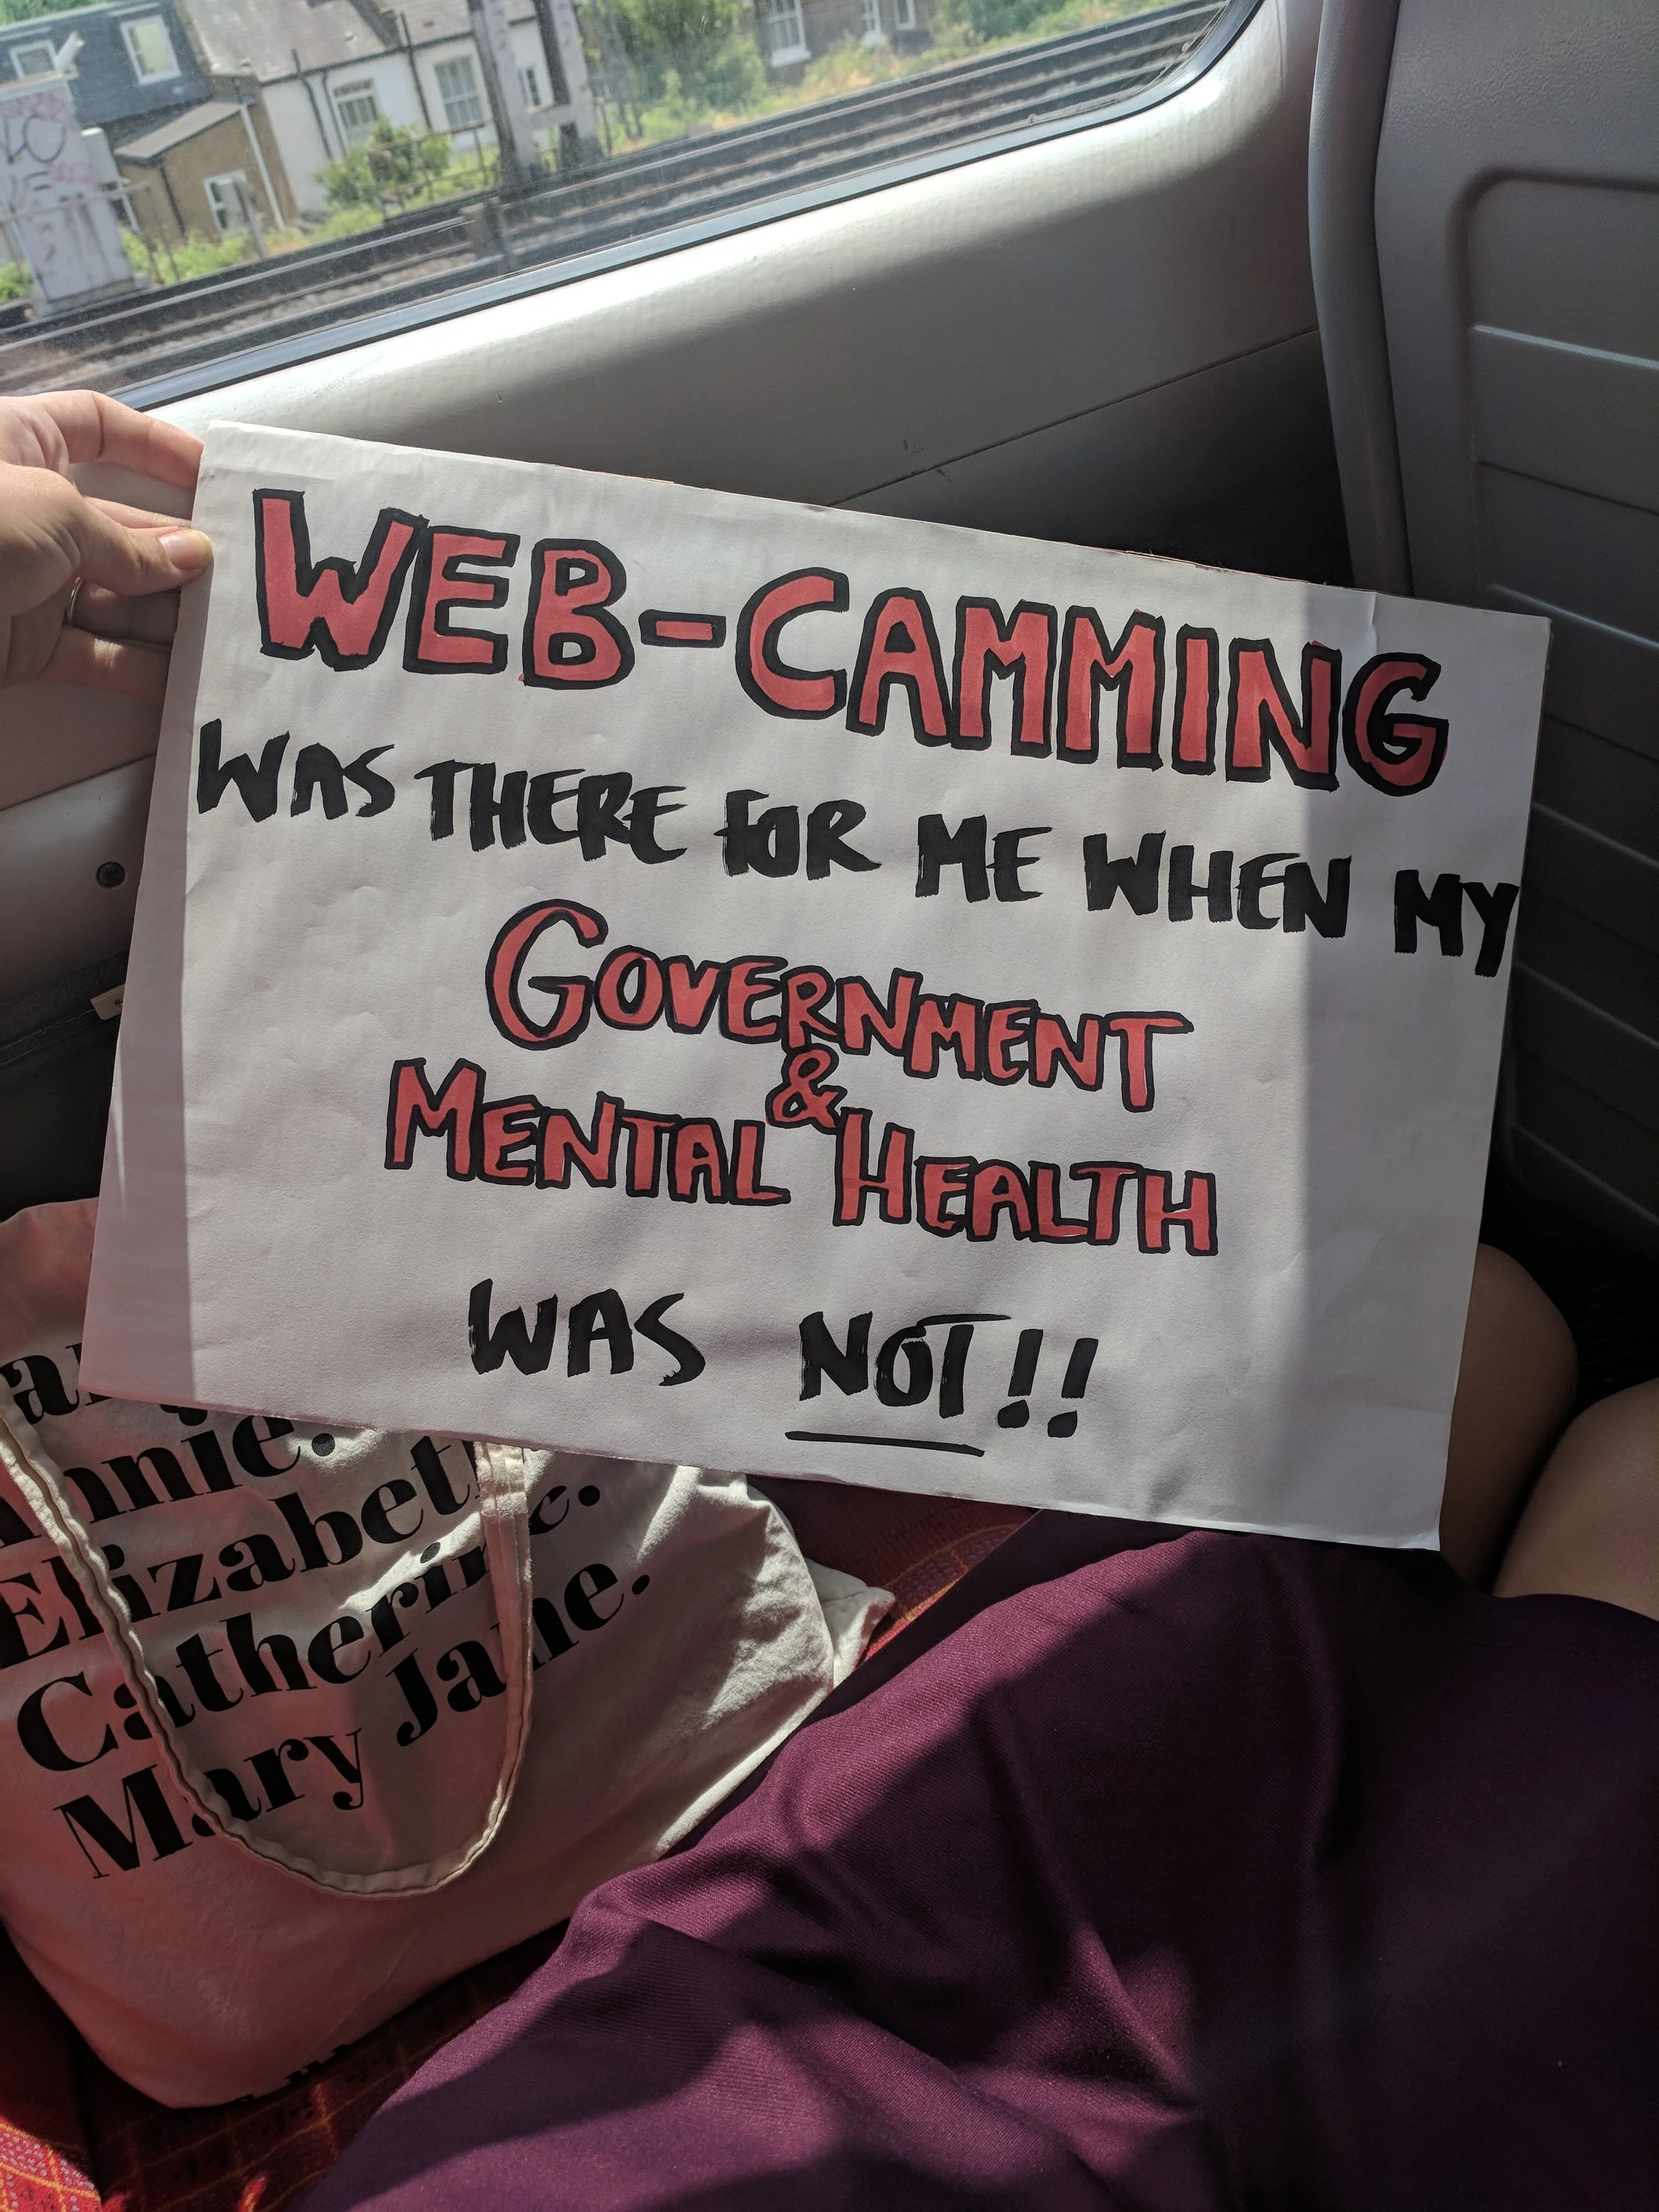 WEB-CAMMING
WAS THERE FOR ME WHEN MY
GOVERNMENT
&
MENTAL HEALTH
WAS NOT!!
Annie.
Elizabeth
Catherine.
Mary Jane.
LO
VE